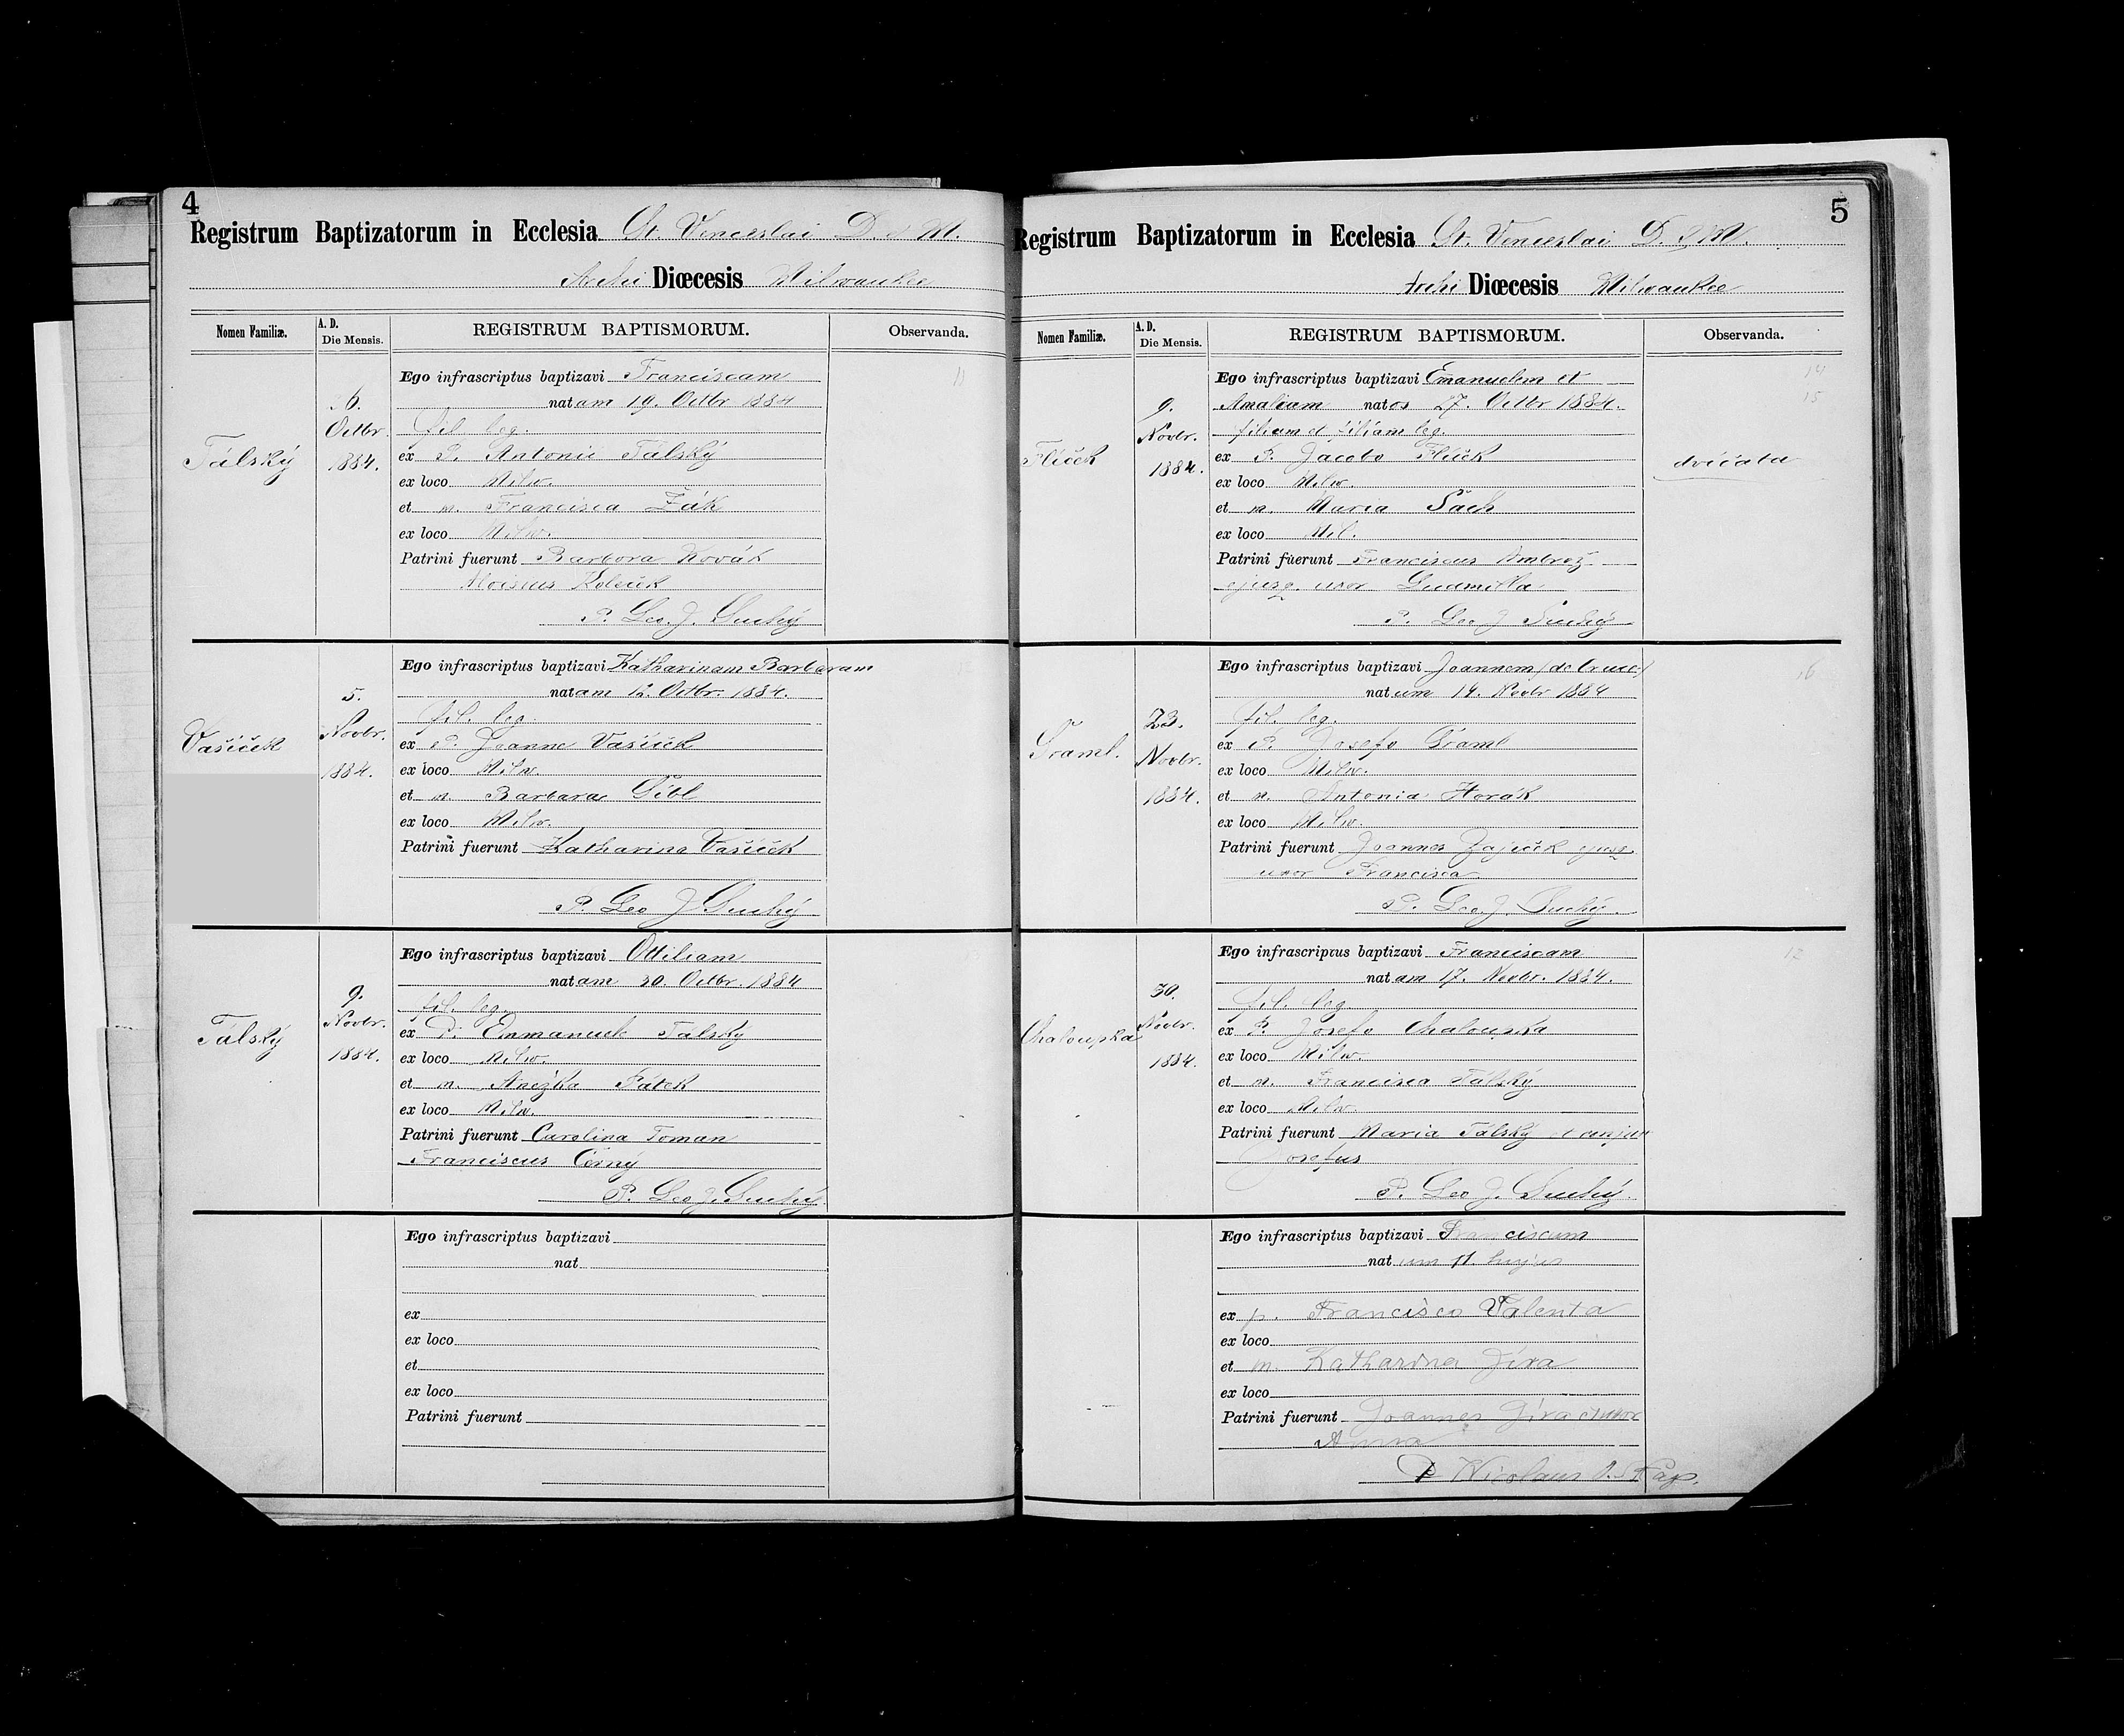 4
Registrum Baptizatorum in Ecclesia St. Venceslai D. & M.
Archi Diœcesis Milwaukee
Nomen Familiæ.
A. D.
Die Mensis.
REGISTRUM BAPTISMORUM.
Observanda.
Tálský
Octbr.
1884.
Ego infrascriptus baptizavi Franciscam
natam 19. Octbr 1884
fil. leg.
ex P. Antonii Tálský
ex loco Milw.
et m. Francisca Žák
ex loco Milw.
Patrini fuerunt Barbora Novák
Aloisius
P. Leo. J. Suchý
11
Vašíček
5.
Novbr.
1884.
Ego infrascriptus baptizavi Katharinam Barbaram
natam 12. Octbr. 1884.
fil. leg.
ex P. Joanne Vašíček
ex loco Milw.
et m. Barbara
ex loco Milw.
Patrini fuerunt Katharina Vašíček
P. Leo J Suchý
Tálský
9.
Novbr.
1884.
Ego infrascriptus baptizavi Ottiliam
natam 30. Octbr. 1884
fil. leg.
ex P. Emmanuele Tálský
ex loco Milw.
et m. Anežka Pátek
ex loco Milw.
Patrini fuerunt Carolina Toman
Franciscus Černý
P. Leo J. Suchý
Ego infrascriptus baptizavi
nat
ex
ex loco
et
ex loco
Patrini fuerunt
5
Registrum Baptizatorum in Ecclesia St. Venceslai D. & M.
Archi Diœcesis Milwaukee
Nomen Familiæ.
A. D.
Die Mensis.
REGISTRUM BAPTISMORUM.
Observanda.
Flíček
9.
Novbr.
1884.
Ego infrascriptus baptizavi Emanuelem et
Amaliam natos 27. Octbr 1884.
filium et filiam leg.
ex P. Jacobo Flíček
ex loco Milw.
et m. Maria Šach
ex loco Mil.
Patrini fuerunt Franciscus Ambrož
ejusq. uxor Ludmilla
P. Leo J Suchý
14
15
dvíčata
Traml.
23.
Novbr.
1884.
Ego infrascriptus baptizavi Joannem (de Cruce)
natum 14. Novbr 1884
fil. leg.
ex P. Josefo Traml
ex loco Milw.
et m. Antonia Horák
ex loco Milw.
Patrini fuerunt Joannes Zajíček ejusq.
uxor Francisca
P. Leo J. Suchý.
16
Chaloupka
30.
Novbr.
1884.
Ego infrascriptus baptizavi Franciscam
natam 17. Novbr. 1884.
fil. leg
ex P. Josefo Chaloupka
ex loco Milw.
et m. Francisca Tálský
ex loco Milw.
Patrini fuerunt Maria Tálský et conjux
Josefus
P. Leo J. Suchý.
17
Ego infrascriptus baptizavi Franciscum
natum 11. hujus
ex p. Francisco Valenta
ex loco
et m. Katharina Jira
ex loco
Patrini fuerunt Joannes Jira et uxor
Anna
P Nicolaus